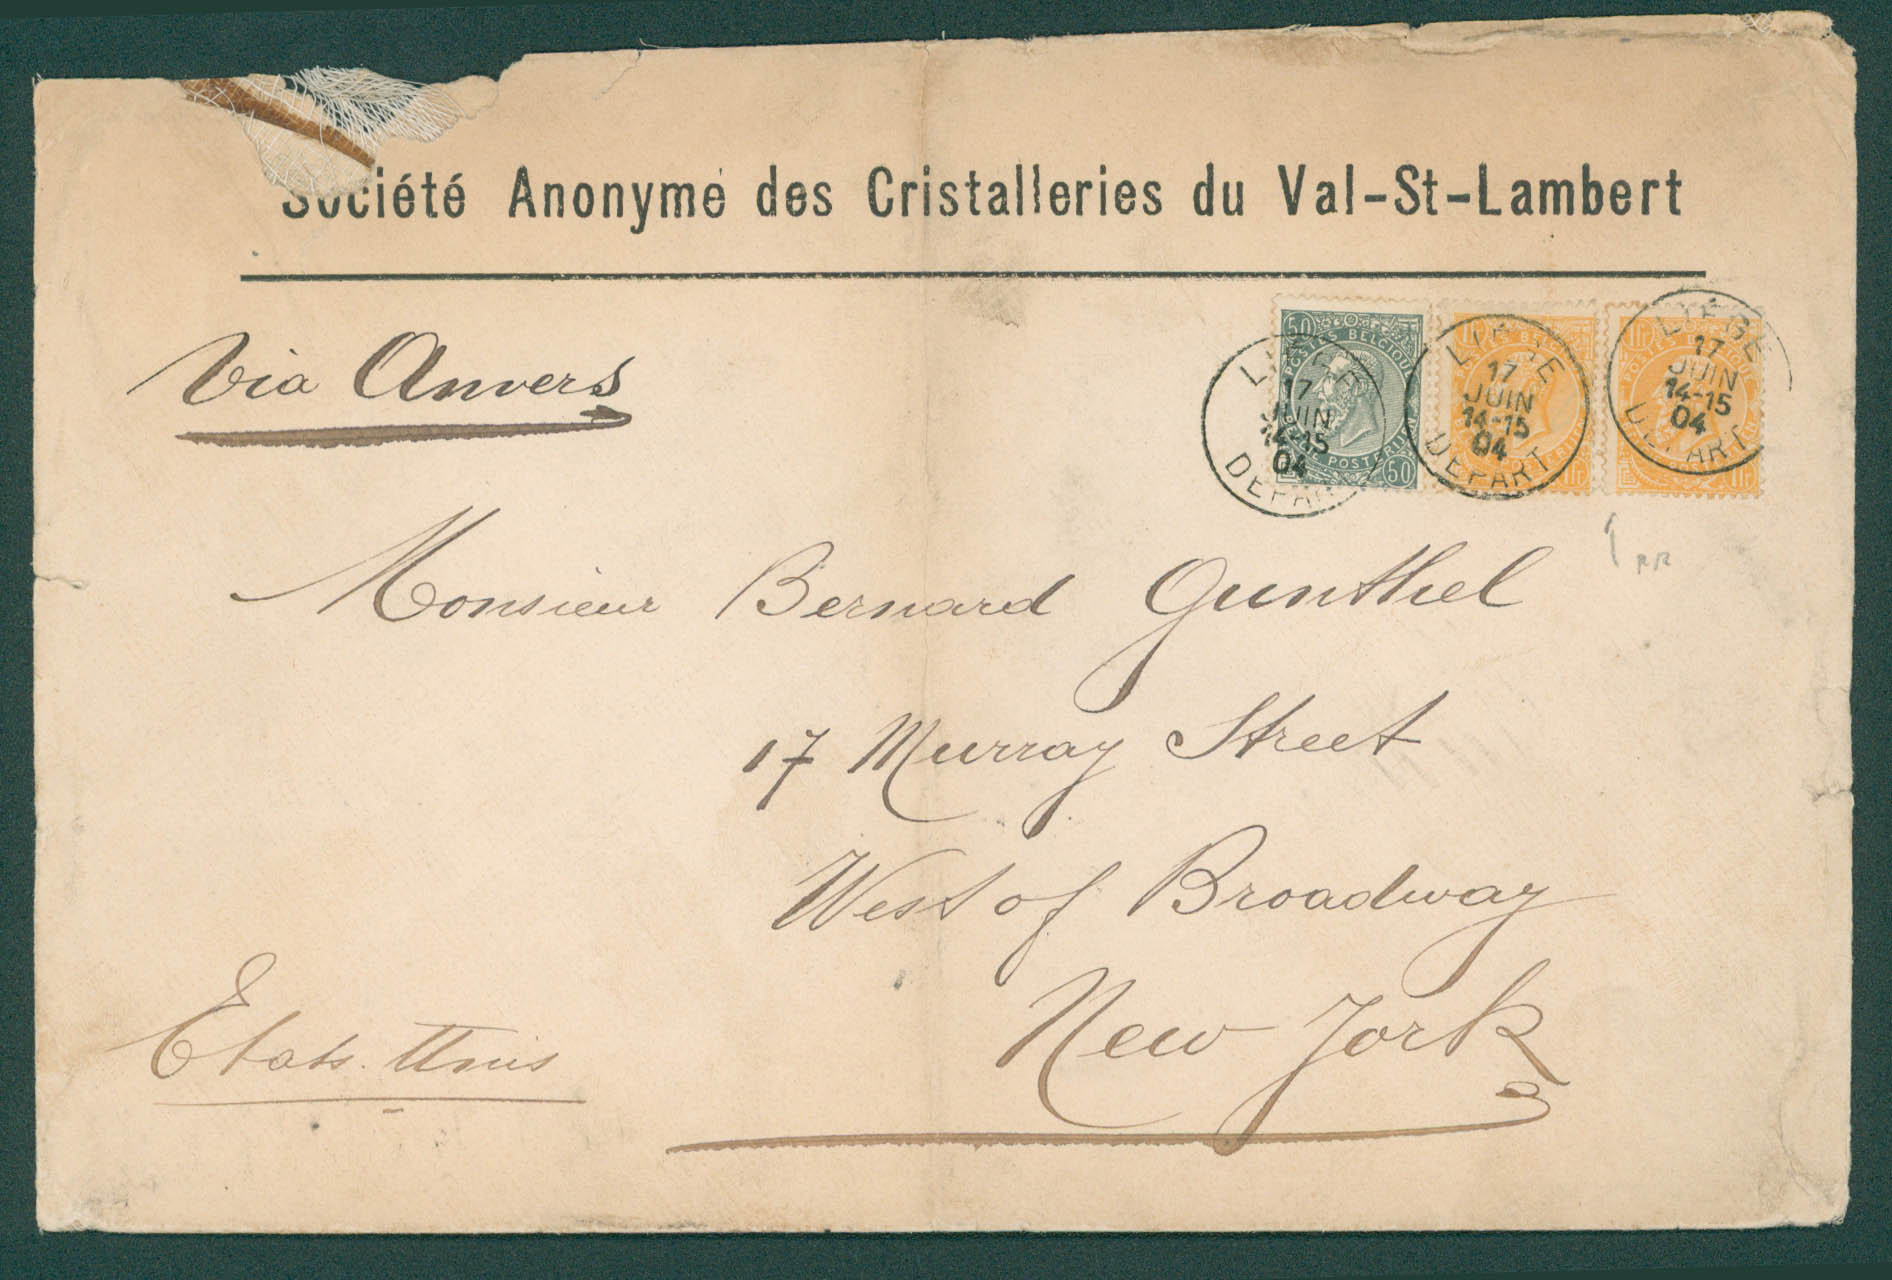 Société Anonyme des Cristalleries du Val-St-Lambert
Via Anvers
50 POSTES BELGIQUE 50
LIÉGE 17 JUIN 14-15 04 DEPART
LIÉGE 17 JUIN 14-15 04 DEPART
LIÉGE 17 JUIN 14-15 04 DEPART
Monsieur Bernard Gunthel
RR
17 Murray Street
West of Broadway
New York
Etats-Unis